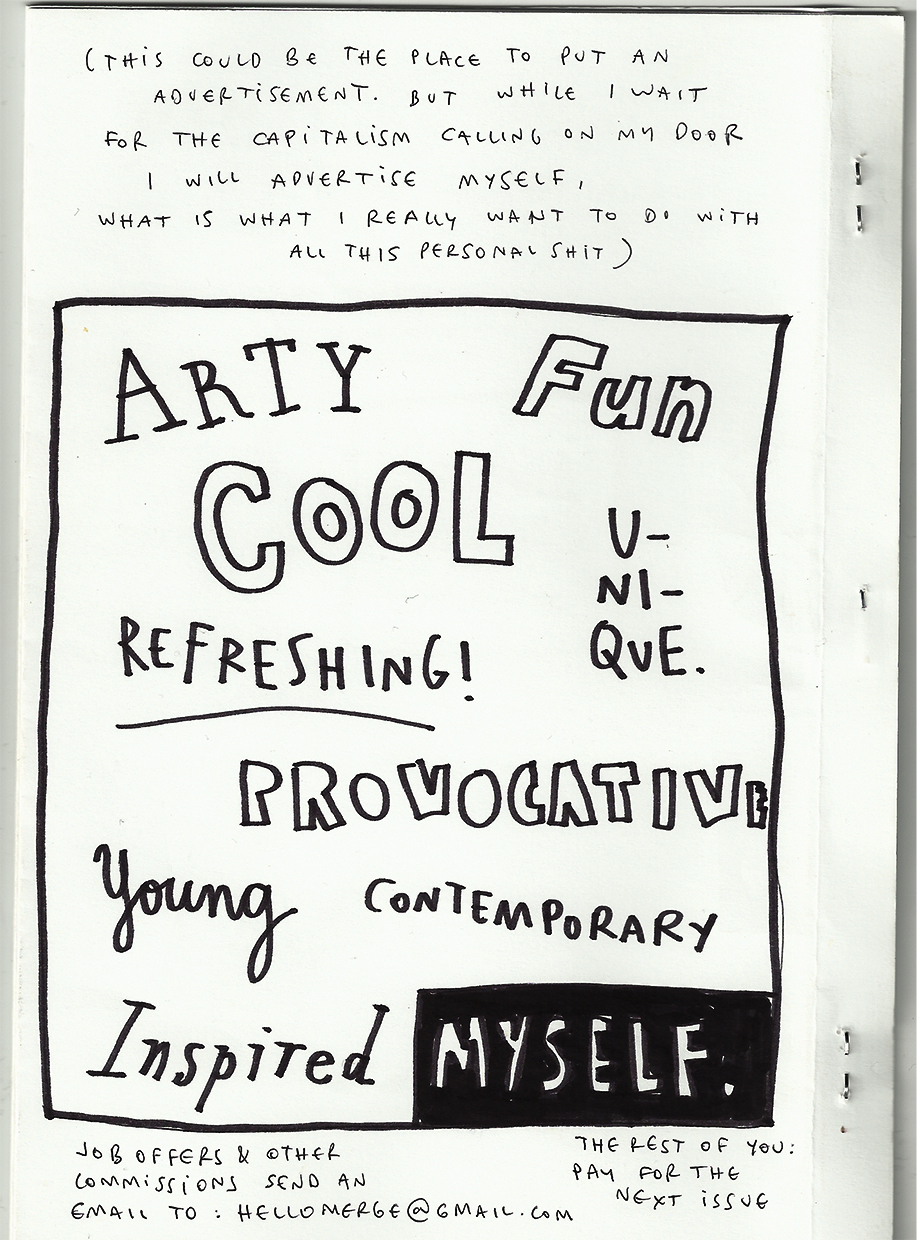 (THIS COULD BE THE PLACE TO PUT AN
ADVERTISEMENT. BUT WHILE I WAIT
FOR THE CAPITALISM CALLING ON MY DOOR
I WILL ADVERTISE MYSELF,
WHAT IS WHAT I REALLY WANT TO DO WITH
ALL THIS PERSONAL SHIT)
ARTY Fun
COOL
U-
NI-
QUE.
REFRESHING!
PROVOCATIVE
Young CONTEMPORARY
Inspired MYSELF.
JOB OFFERS & OTHER
COMMISSIONS SEND AN
EMAIL TO : HELLOMERGE@GMAIL.COM
THE REST OF YOU:
PAY FOR THE
NEXT ISSUE